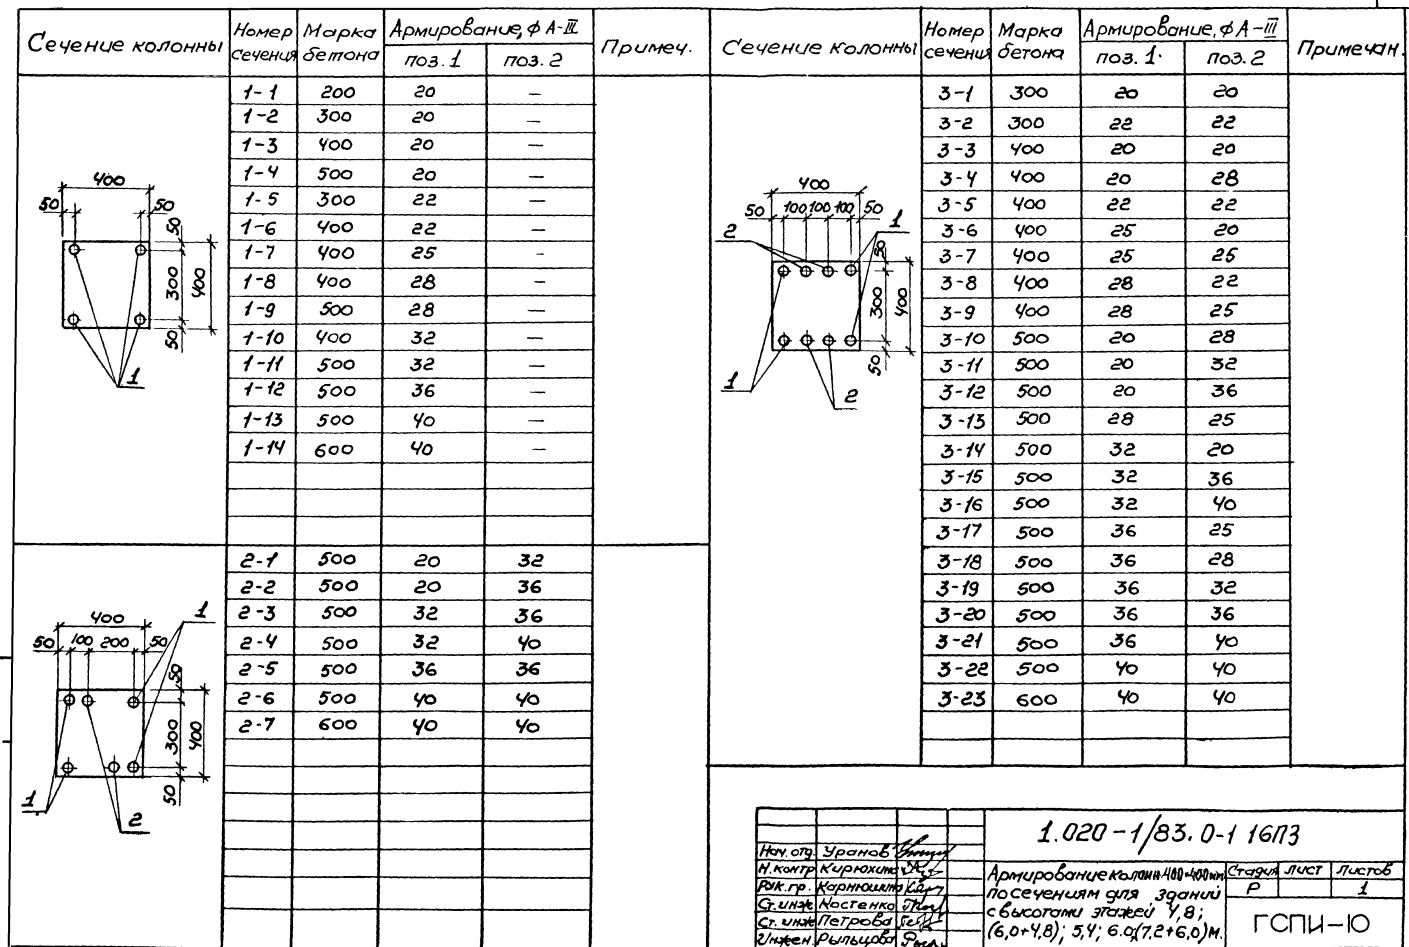 Сечение колонны Номер сечения Марка бетона Армирование, ф А-III Примеч.
поз. 1 поз. 2
1-1 200 20 —
1-2 300 20 —
1-3 400 20 —
1-4 500 20 —
1-5 300 22 —
1-6 400 22 —
1-7 400 25 -
1-8 400 28 —
1-9 500 28 —
1-10 400 32 —
1-11 500 32 —
1-12 500 36 —
1-13 500 40 —
1-14 600 40 —
400
50 50
50
300 400
50
1
2-1 500 20 32
2-2 500 20 36
2-3 500 32 36
2-4 500 32 40
2-5 500 36 36
2-6 500 40 40
2-7 600 40 40
400 1
50 100 200 50
50
300 400
50
1
2
Сечение колонны Номер сечения Марка бетона Армирование, ф А-III Примечан.
поз. 1 поз. 2
3-1 300 20 20
3-2 300 22 22
3-3 400 20 20
3-4 400 20 28
3-5 400 22 22
3-6 400 25 20
3-7 400 25 25
3-8 400 28 22
3-9 400 28 25
3-10 500 20 28
3-11 500 20 32
3-12 500 20 36
3-13 500 28 25
3-14 500 32 20
3-15 500 32 36
3-16 500 32 40
3-17 500 36 25
3-18 500 36 28
3-19 500 36 32
3-20 500 36 36
3-21 500 36 40
3-22 500 40 40
3-23 600 40 40
400
50 100 100 100 50 1
2
50
300 400
50
1
2
1.020-1/83.0-1 16ПЗ
Нач. отд. Уранов
Н.контр Кирюхина
Рук.гр. Карнюшина
Ст.инж Костенко
Ст.инж Петрова
Инжен. Рыльцова
Армирование колонн 400×400мм
по сечениям для зданий
с высотами этажей 4,8;
(6,0+4,8); 5,4; 6.0;(7,2+6,0)м.
Стадия Лист Листов
Р 1
ГСПИ-10